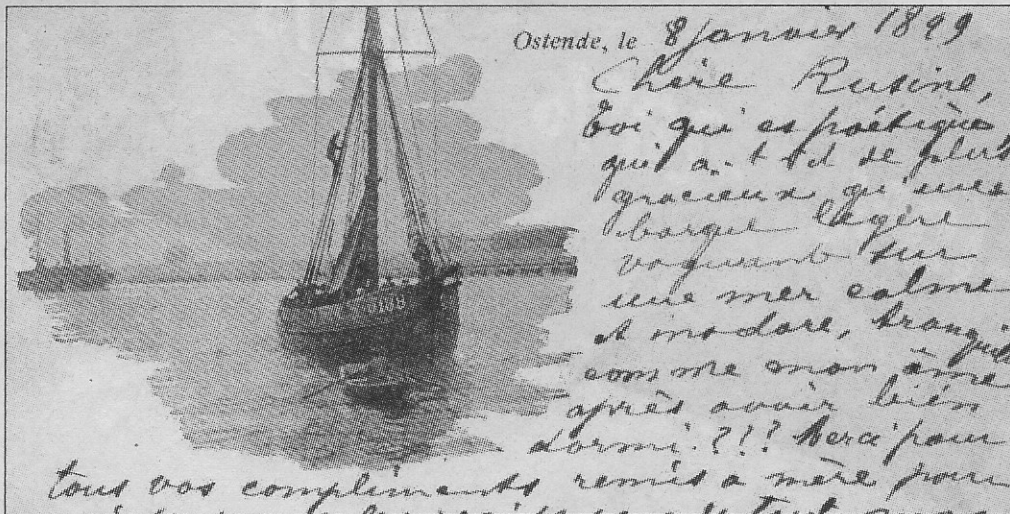 Ostende, le 8 janvier 1899
Chère Rusine,
toi qui es poétique
qui a-t-il de plus
gracieux qu'une
barque légère
voguant sur
une mer calme
et inodore, tranquille
comme mon âme
après avoir bien
dormi.?!! Merci pour
O188
tous vos compliments remis à mère pour